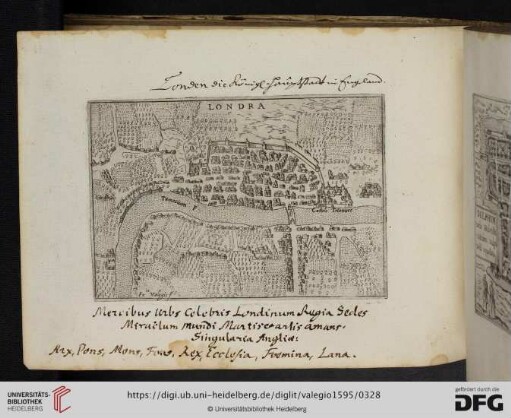 Londen die Königl: Hauptstadt in Engeland.
LONDRA
Tamesis F.
Fr. Valegio f.
Mercibus Urbs Celebris Londinum Regia Sedes
Miraclum mundi Martis et artis amans.
Singularia Angliæ:
Arx, Pons, Mons, Fons, Rex, Ecclesia, Fœmina, Lana.
UNIVERSITÄTS-
BIBLIOTHEK
HEIDELBERG
https://digi.ub.uni-heidelberg.de/diglit/valegio1595/0328
© Universitätsbibliothek Heidelberg
gefördert durch die
DFG